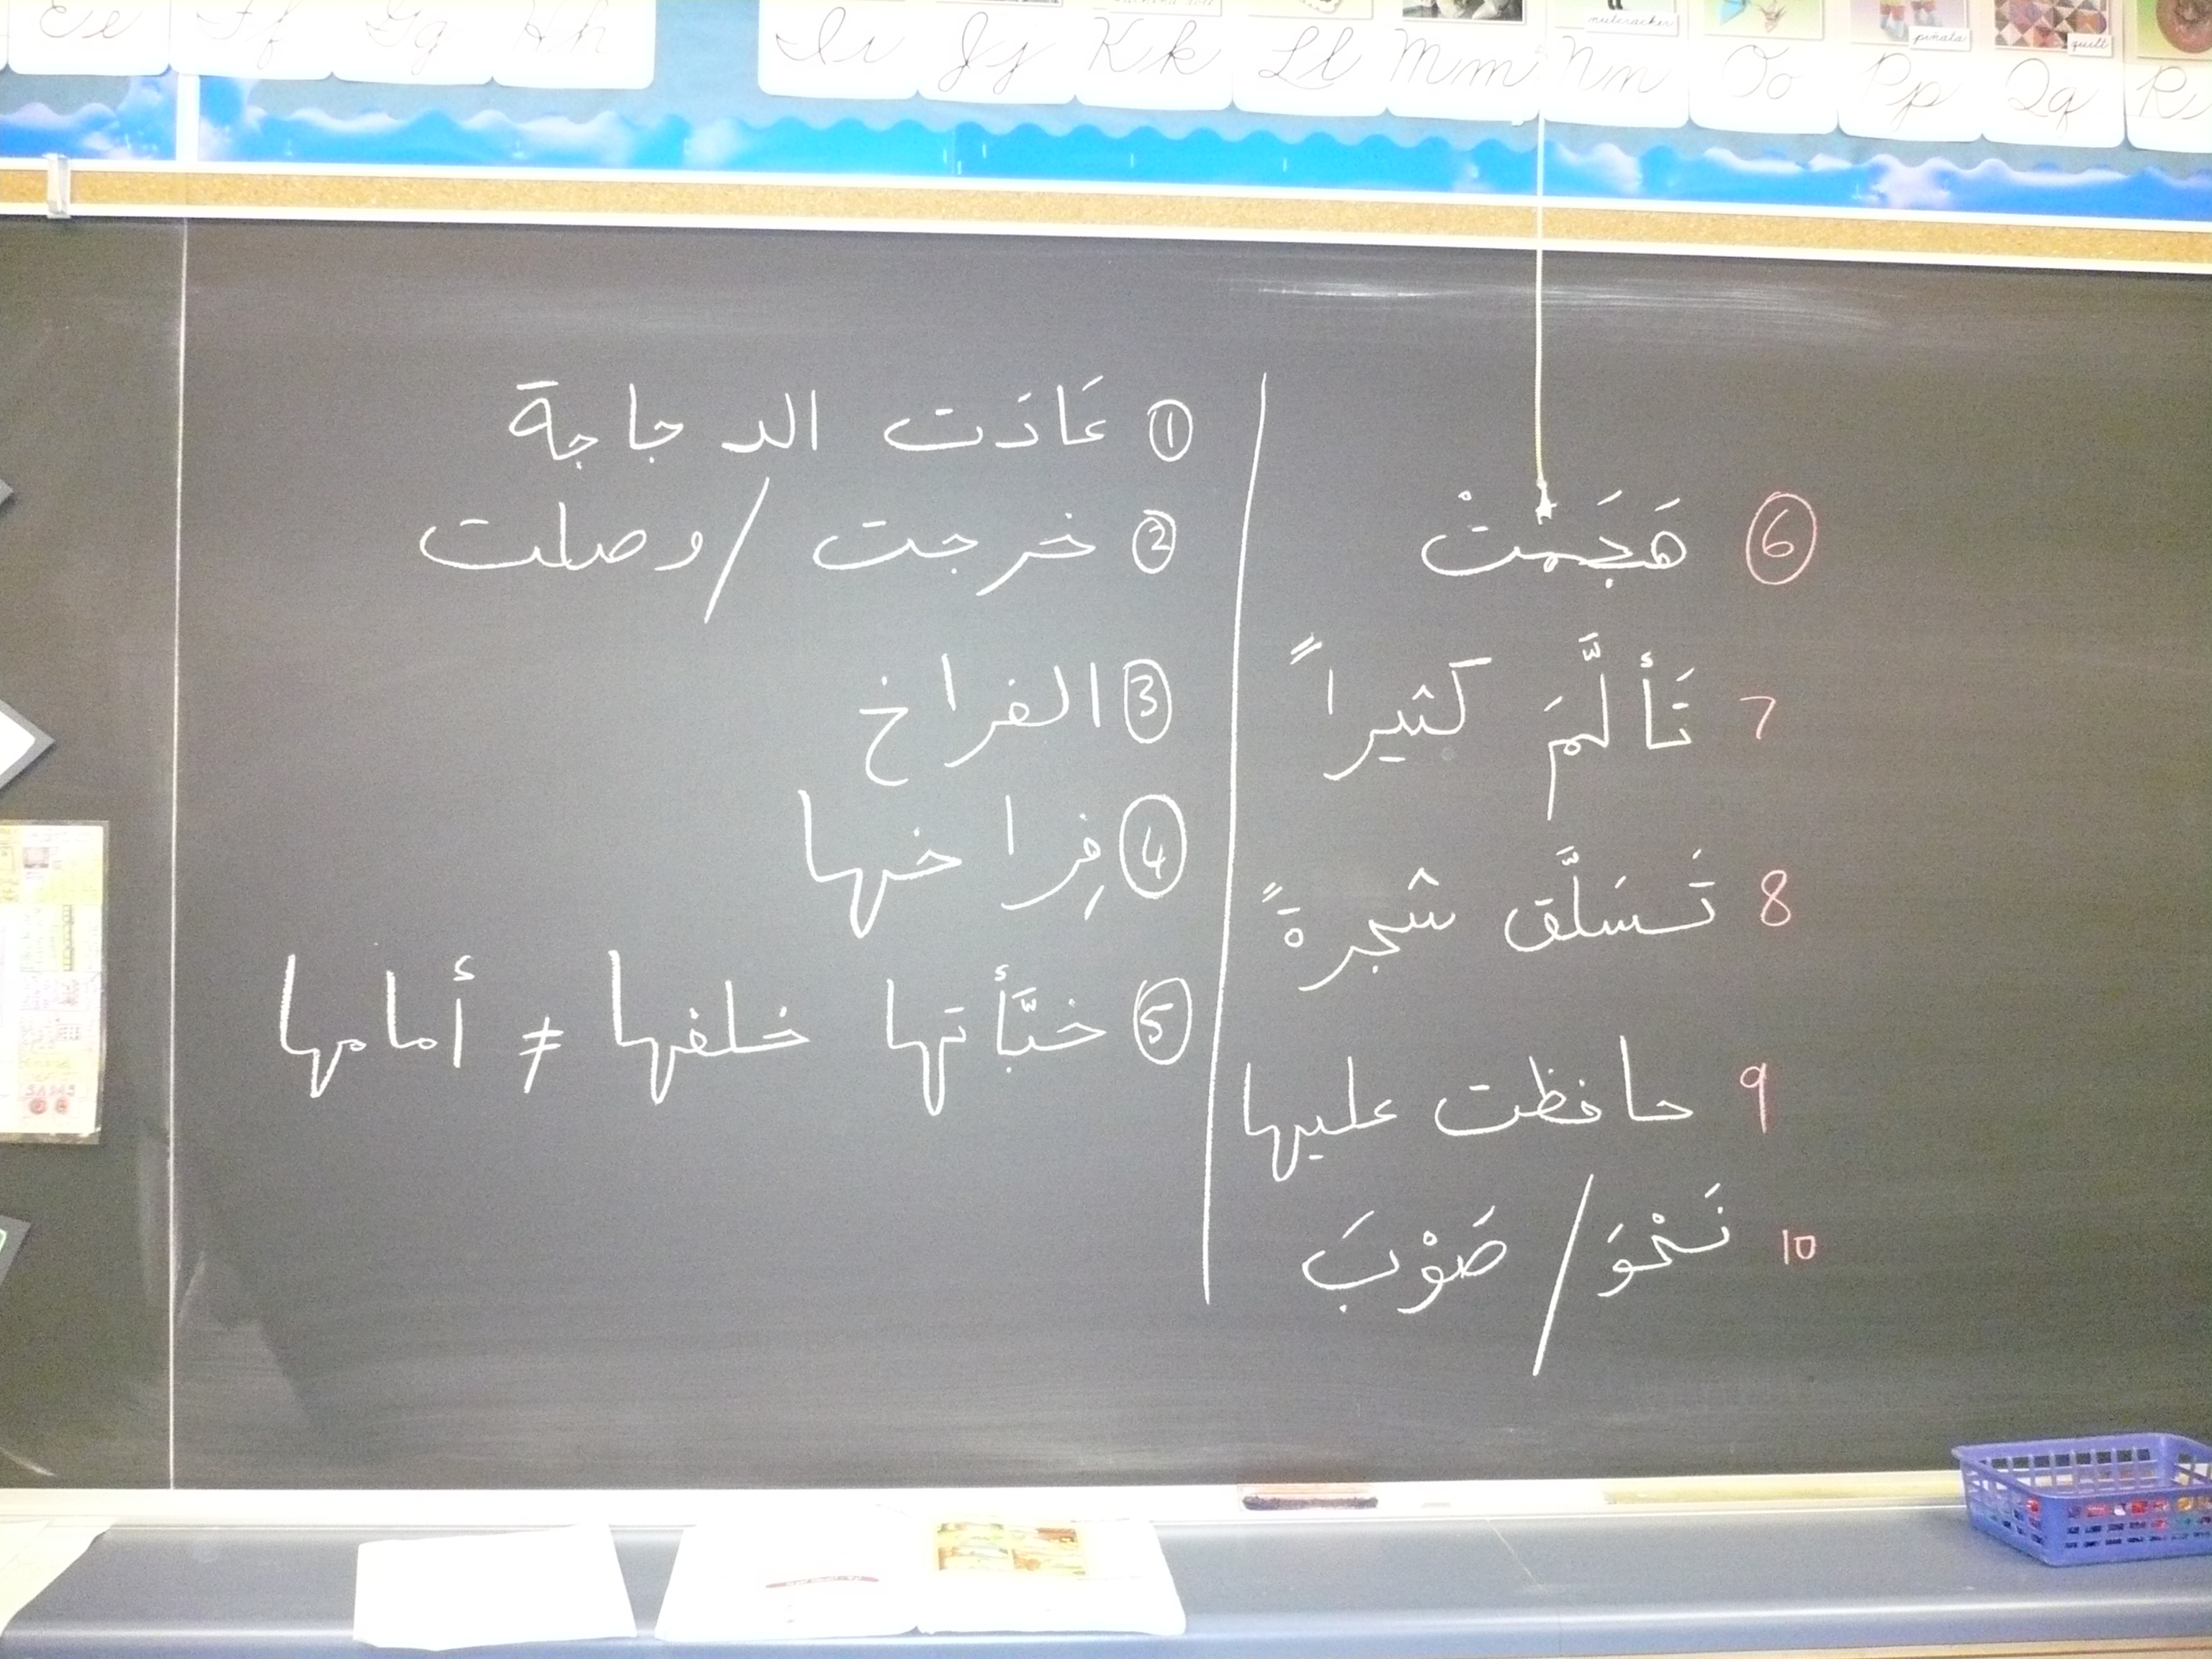 Ee Ff Gg Hh Ii Jj Kk Ll Mm Nn Oo Pp Qq R
nutcracker
piñata
quilt
① عَادَت الدجاجة
② خرجت / وصلت
③ الفراخ
④ فِراخها
⑤ خبَّأتها خلفها ≠ أمامها
⑥ هَجَمَتْ
7 تَألَّمَ كثيراً
8 تَسَلَّق شجرةً
9 حافظت عليها
10 نَحْوَ / صَوْبَ